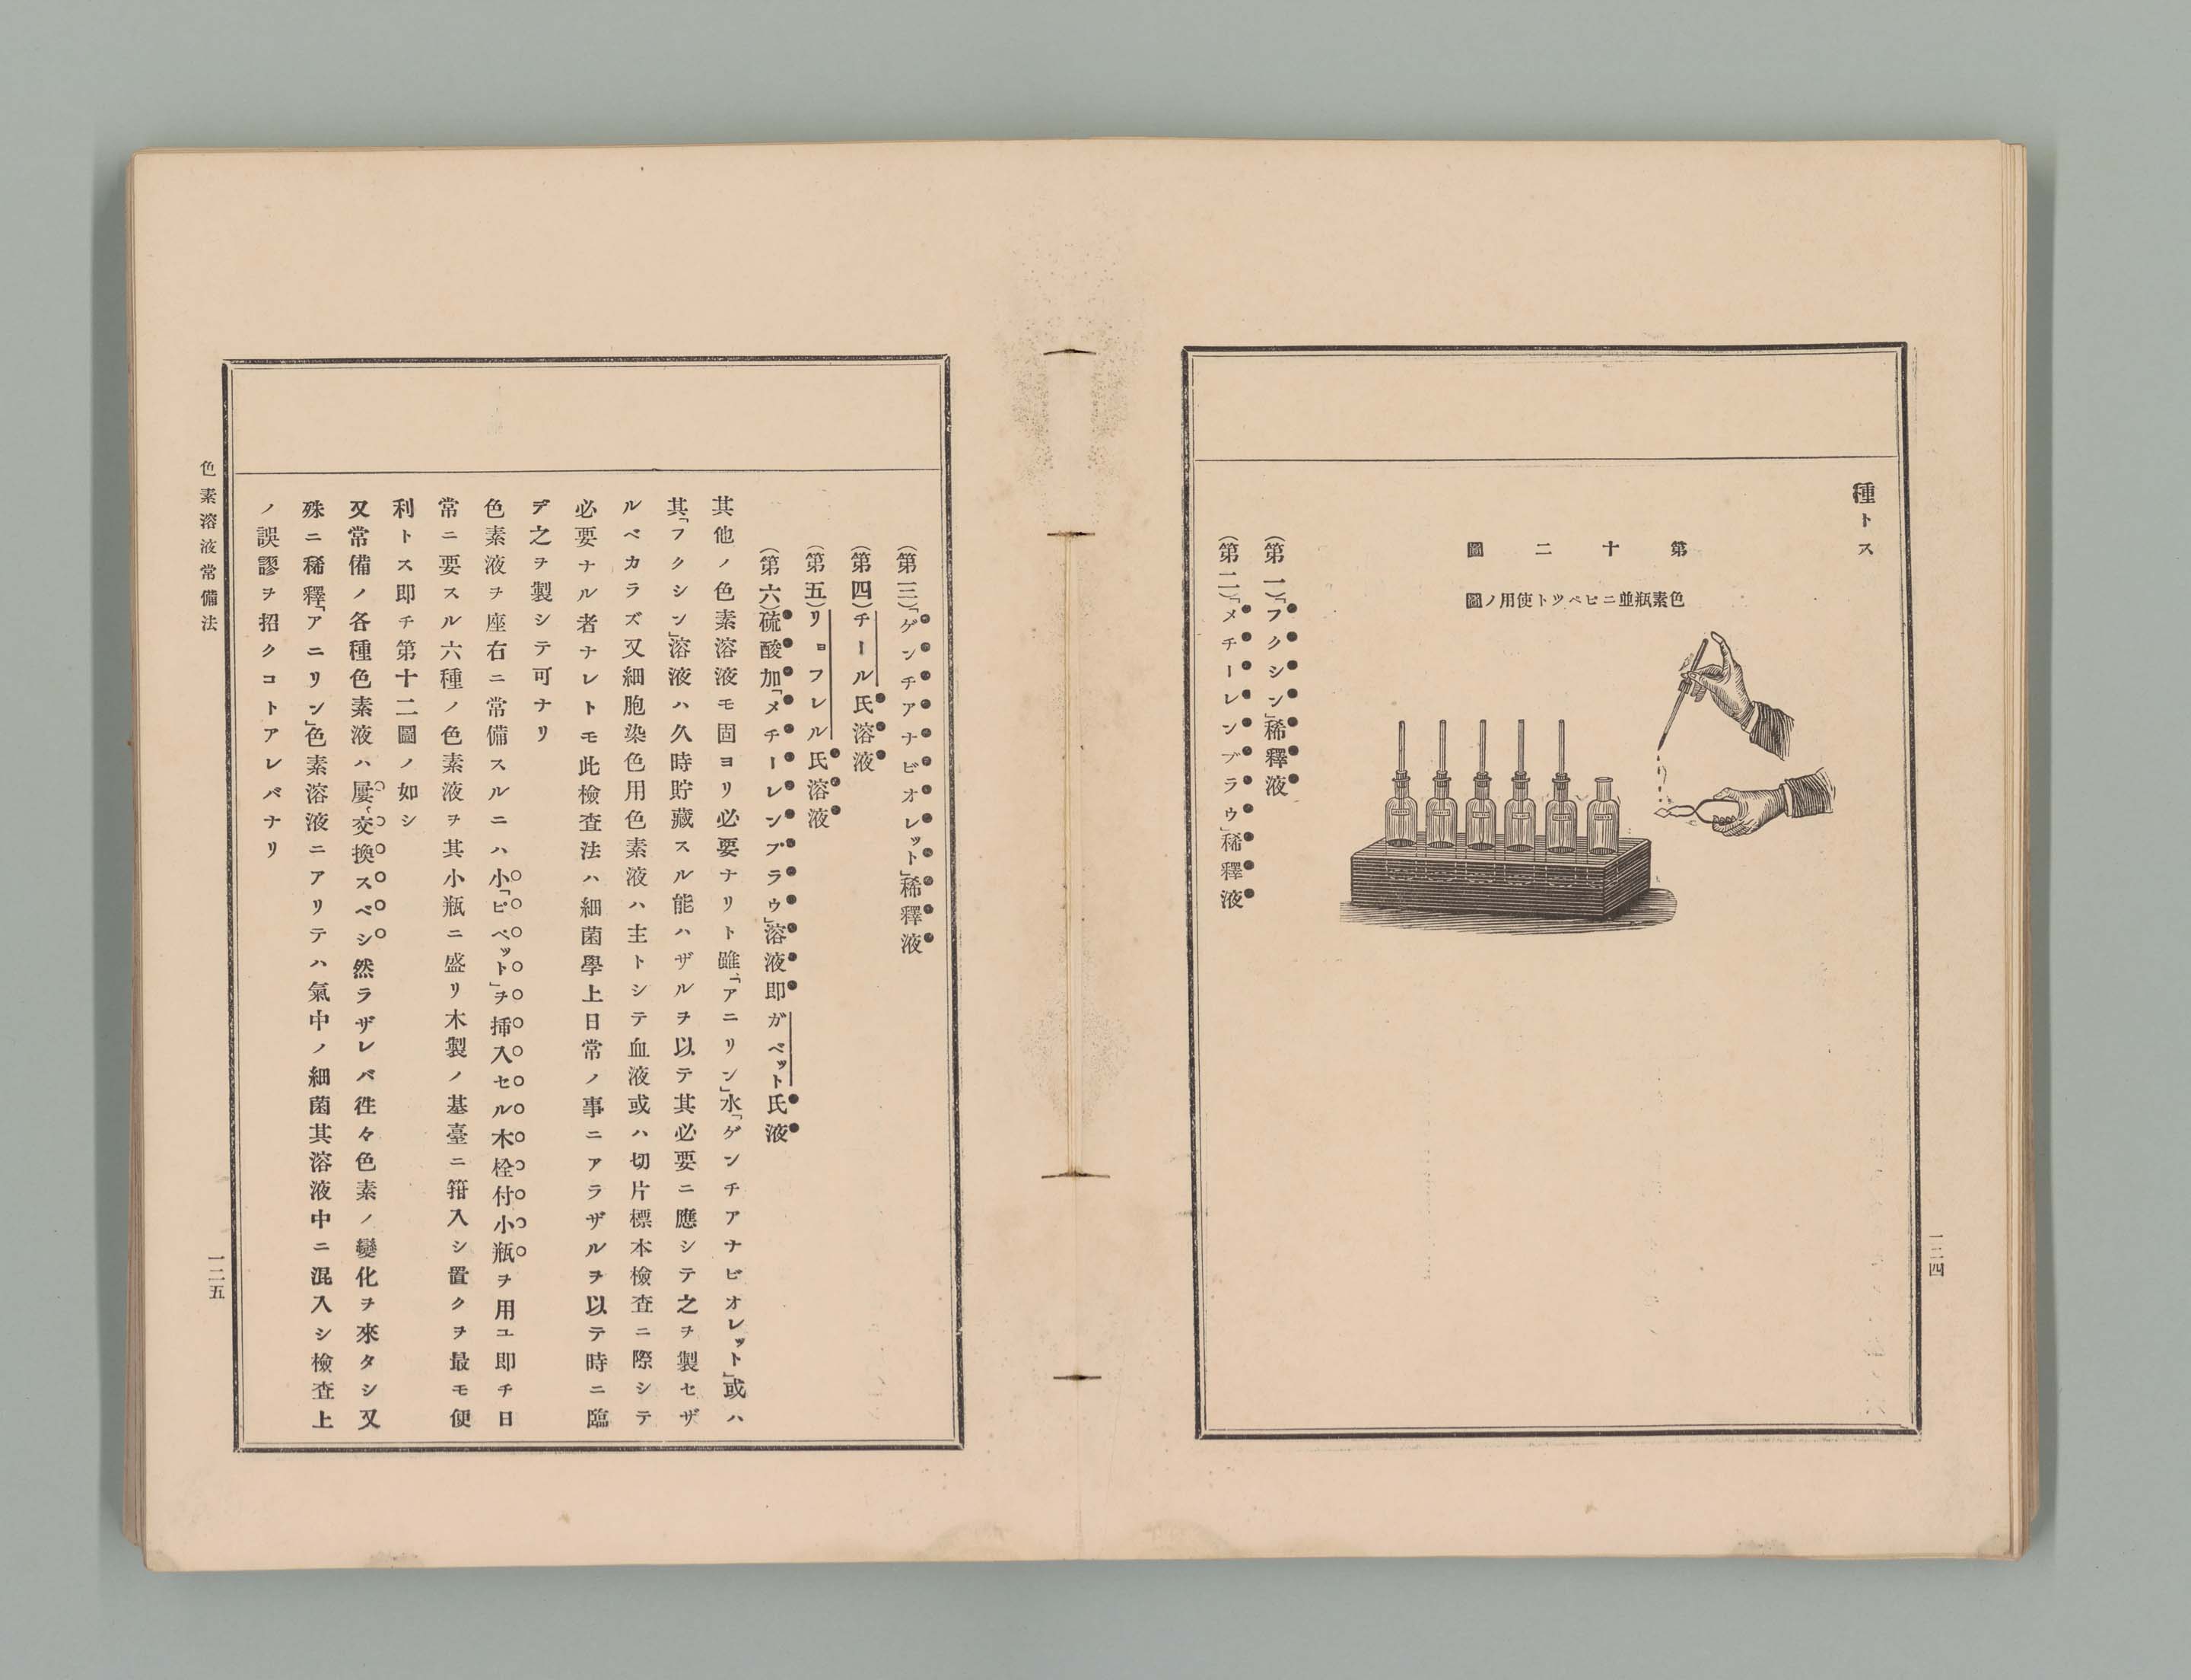 種トス
第十二圖
色素瓶並ニピペツト使用ノ圖
(第一)「フクシン」稀釋液
(第二)「メチーレンブラウ」稀釋液
一二四
(第三)「ゲンチアナビオレット」稀釋液
(第四)チール氏溶液
(第五)リョフレル氏溶液
(第六)硫酸加「メチーレンブラウ」溶液即ガベット氏液
其他ノ色素溶液モ固ヨリ必要ナリト雖「アニリン」水「ゲンチアナビオレット」或ハ
其「フクシン」溶液ハ久時貯藏スル能ハザルヲ以テ其必要ニ應シテ之ヲ製セザ
ルベカラズ又細胞染色用色素液ハ主トシテ血液或ハ切片標本檢査ニ際シテ
必要ナル者ナレトモ此檢査法ハ細菌學上日常ノ事ニアラザルヲ以テ時ニ臨
デ之ヲ製シテ可ナリ
色素液ヲ座右ニ常備スルニハ小「ピペット」ヲ挿入セル木栓付小瓶ヲ用ユ即チ日
常ニ要スル六種ノ色素液ヲ其小瓶ニ盛リ木製ノ基臺ニ箝入シ置クヲ最モ便
利トス即チ第十二圖ノ如シ
又常備ノ各種色素液ハ屢〻交換スベシ然ラザレバ徃々色素ノ變化ヲ來タシ又
殊ニ稀釋「アニリン」色素溶液ニアリテハ氣中ノ細菌其溶液中ニ混入シ檢査上
ノ誤謬ヲ招クコトアレバナリ
色素溶液常備法
一二五